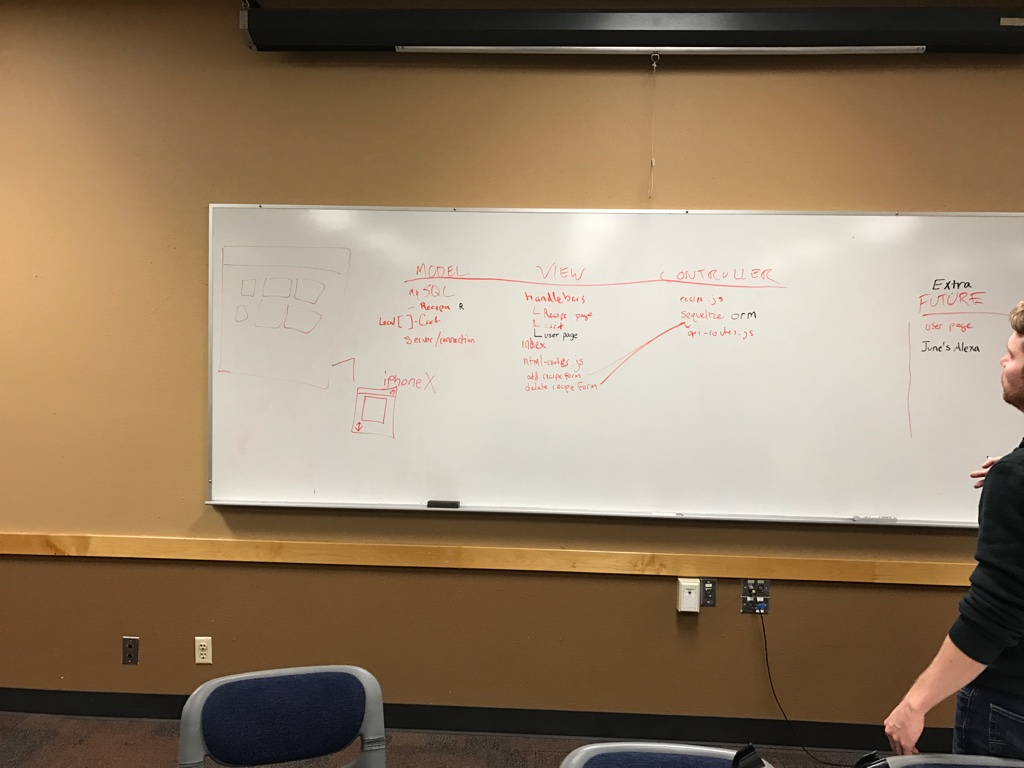 MODEL
mySQL
- Recipes R
Local [ ] - Cart
Server/connection
iphone X
VIEW
handlebars
Recipe page
cart
user page
index
html-routes.js
add recipe form
delete recipe form
CONTROLLER
recipe.js
Sequelize orm
api-routes.js
Extra
FUTURE
user page
June's Alexa